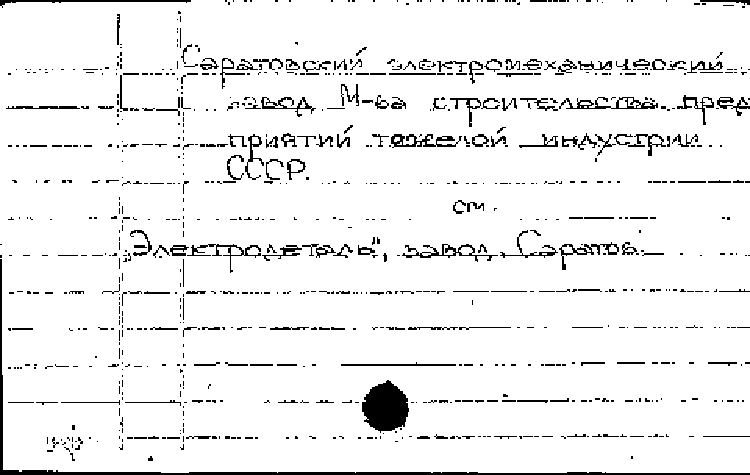 Саратовский электромеханический
завод М-ва строительства пред
приятий тяжелой индустрии
СССР.
см.
„Электродеталь", завод. Саратов.